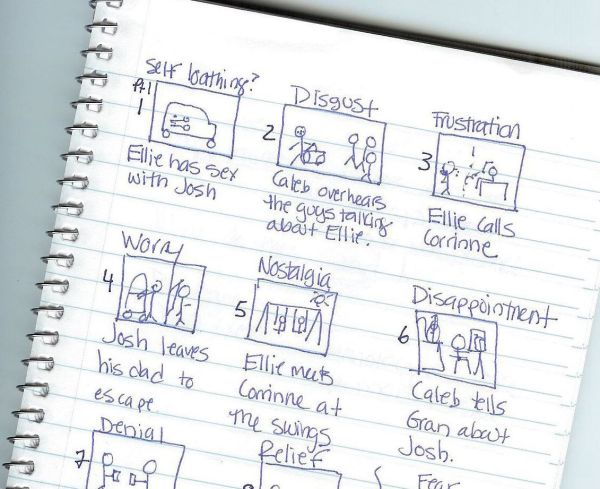 Self loathing?
1
Ellie has sex
with Josh
Disgust
2
Caleb overhears
the guys talking
about Ellie.
Frustration
3
Ellie calls
Corrinne
Worry
4
Josh leaves
his dad to
escape
Nostalgia
5
Ellie meets
Corinne at
the swings
Disappointment
6
Caleb tells
Gran about
Josh.
Denial
7
Relief
Fear